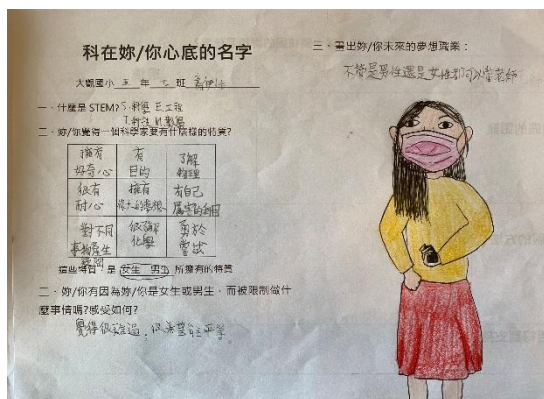 科在妳/你心底的名字
大觀國小 五 年 七 班
一、什麼是 STEM? S.科學 E.工程
T.科技 M.數學
二、妳/你覺得一個科學家要有什麼樣的特質?
擁有好奇心
有目的
了解物理
很有耐心
擁有
有自己
對不同事物產生疑問
很了解化學
勇於
這些特質,是 女生 男生 所擁有的特質
二、妳/你有因為妳/你是女生或男生,而被限制做什
麼事情嗎?感受如何?
覺得很難過,
三、畫出妳/你未來的夢想職業:
不管是男性還是女性都可以當老師